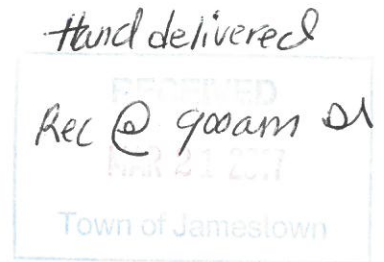 Hand delivered
RECEIVED
Rec @ 900am
MAR 21 2017
Town of Jamestown